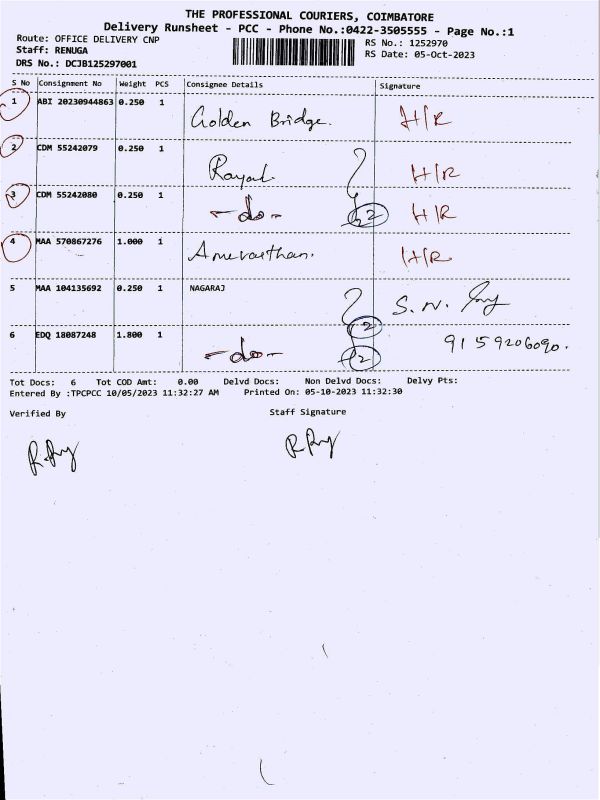 THE PROFESSIONAL COURIERS, COIMBATORE
Delivery Runsheet - PCC - Phone No.:0422-3505555 - Page No.:1
Route: OFFICE DELIVERY CNP
RS No.: 1252970
Staff: RENUGA
RS Date: 05-Oct-2023
DRS No.: DCJB125297001
S No Consignment No Weight PCS Consignee Details Signature
1 ABI 20230944863 0.250 1 Golden Bridge. H/R
2 CDM 55242079 0.250 1 Royal. H/R
3 CDM 55242080 0.250 1 -do- 2 H/R
4 MAA 570867276 1.000 1 H/R
5 MAA 104135692 0.250 1 NAGARAJ 2 S.N.
6 EDQ 18087248 1.800 1 -do- 2 9159206090.
Tot Docs: 6 Tot COD Amt: 0.00 Delvd Docs: Non Delvd Docs: Delvy Pts:
Entered By :TPCPCC 10/05/2023 11:32:27 AM Printed On: 05-10-2023 11:32:30
Verified By Staff Signature